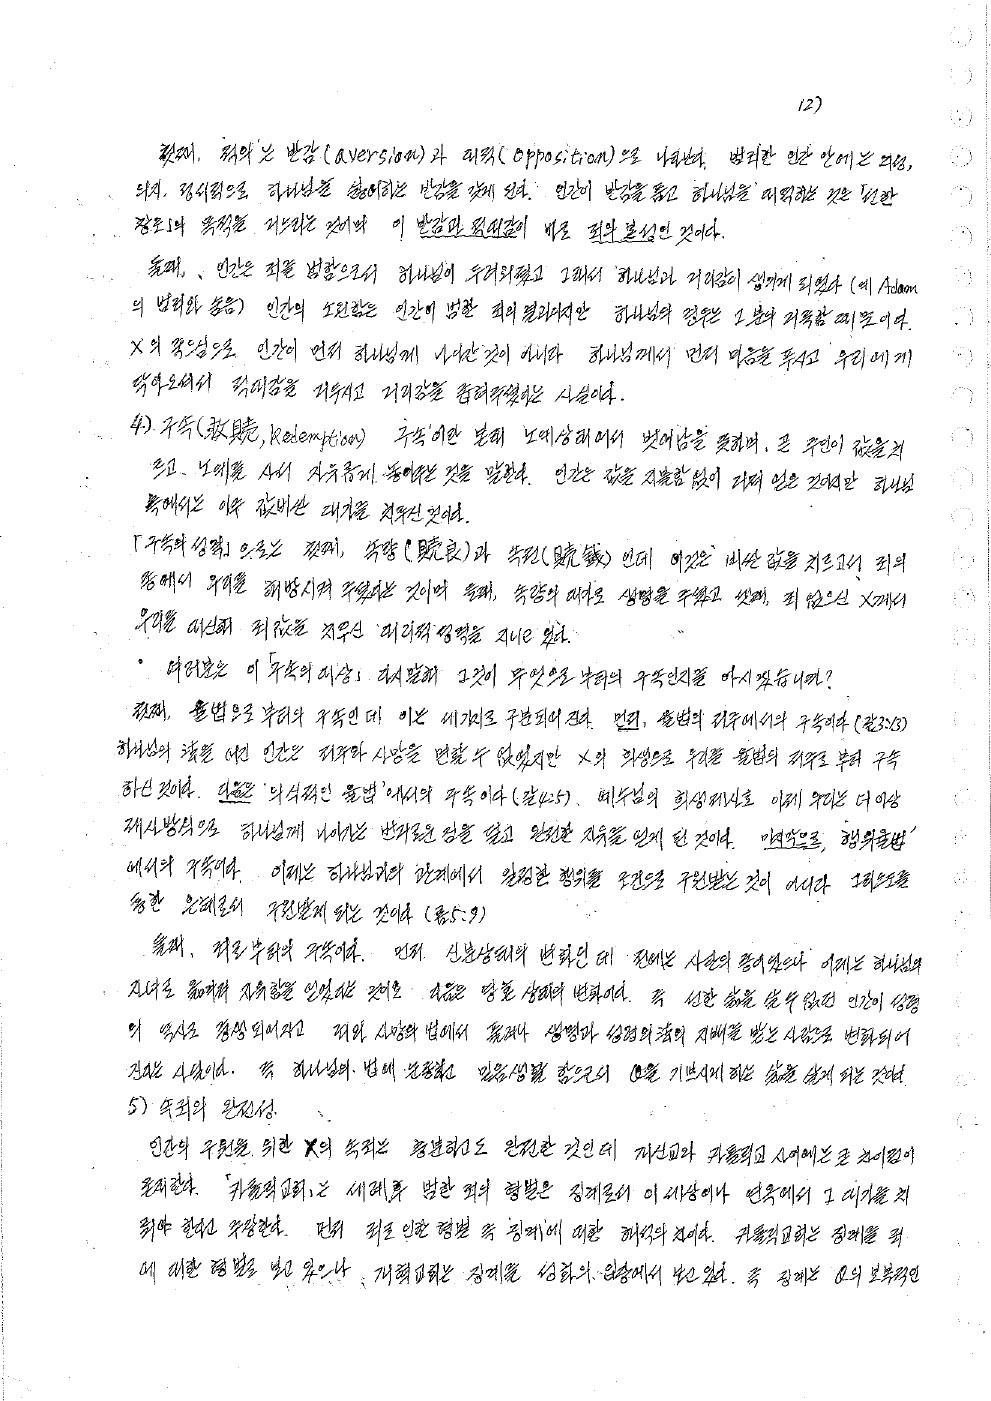 12)
첫째, '적의'는 반감(aversion)과 대적(opposition)으로 나타난다. 범죄한 인간 안에는 의심,
의지, 정서적으로 하나님을 싫어하는 반감을 갖게 된다. 인간이 반감을 품고 하나님을 대적하는 것은 「선한
창조」의 목적을 거스리는 것이며 이 반감과 적대감이 바로 죄의 본성인 것이다.
둘째, 인간은 죄를 범함으로서 하나님이 두려워졌고 그래서 하나님과 거리감이 생기게 되었다 (예 Adam
의 범죄와 숨음) 인간의 소원함는 인간이 범한 죄의 결과이지만 하나님의 경우는 그분의 거룩함 때문이다.
X의 죽으심으로 인간이 먼저 하나님께 나아간 것이 아니라 하나님께서 먼저 마음을 푸시고 우리에게
찾아오셔서 적대감을 거두시고 거리감을 좁혀주셨다는 사실이다.
4) 구속(救贖, Redemption) '구속'이란 본래 노예상태에서 벗어남을 뜻하며, 곧 주인이 값을 치
르고, 노예를 사서 자유롭게 놓아주는 것을 말한다. 인간은 값을 지불함 없이 거저 얻은 것이지만 하나님
쪽에서는 아주 값비싼 대가를 치루신 것이다.
「구속의 성격」으로는 첫째, 속량(贖良)과 속전(贖錢)인데 이것은 비싼 값을 치르고서 죄의
종에서 우리를 해방시켜 주셨다는 것이며 둘째, 속량의 대가로 생명을 주셨고 셋째, 죄 없으신 X께서
우리를 대신해 죄값을 치루신 '대리적' 성격을 지니고 있다.
• 여러분은 이 「구속의 대상」 다시말해 그것이 무엇으로 부터의 구속인지를 아시겠습니까?
첫째, 율법으로 부터의 구속인데 이는 세가지로 구분되어 진다. 먼저, 율법의 저주에서의 구속이다 (갈3:13)
하나님의 法을 어긴 인간은 저주와 사망을 면할 수 없었지만 X의 희생으로 우리를 율법의 저주로 부터 구속
하신 것이다. 다음은 '의식적인 율법'에서의 구속이다 (갈4:5). 예수님의 희생제사로 이제 우리는 더이상
제사방식으로 하나님께 나아가는 번거로운 짐을 덜고 완전한 자유를 얻게 된 것이다. 마지막으로, '행위율법'
에서의 구속이다. 이제는 하나님과의 관계에서 완전한 행위를 조건으로 구원받는 것이 아니라 그리스도를
통한 은혜로서 구원받게 되는 것이다 (롬5:9)
둘째, 죄로 부터의 구속이다. 먼저 신분상태의 변화인데 전에는 사탄의 종이었으나 이제는 하나님의
자녀로 옮겨져 자유함을 얻었다는 것이요 다음은 영혼 상태의 변화이다. 즉 선한 삶을 살 수 없던 인간이 성령
의 역사로 중생되어지고 죄와 사망의 법에서 풀려나 생명과 성령의 法의 지배를 받는 사람으로 변화되어
진다는 사실이다. 즉 하나님의 법에 순종하고 믿음생활 함으로서 θ을 기쁘시게 하는 삶을 살게 되는 것이다.
5) 속죄의 완전성.
인간의 구원을 위한 X의 속죄는 충분하고도 완전한 것인데 개신교와 카톨릭교 사이에는 큰 차이점이
존재한다. 「카톨릭교회」는 세례後 범한 죄의 형벌은 징계로서 이 세상이나 연옥에서 그 대가를 치
뤄야 한다고 주장한다. 먼저 죄로 인한 형벌 즉 '징계'에 대한 해석의 차이다. 카톨릭교회는 징계를 죄
에 대한 형벌로 보고 있으나, 개혁교회는 징계를 성화의 입장에서 보고 있다. 즉 징계는 θ의 보복적인